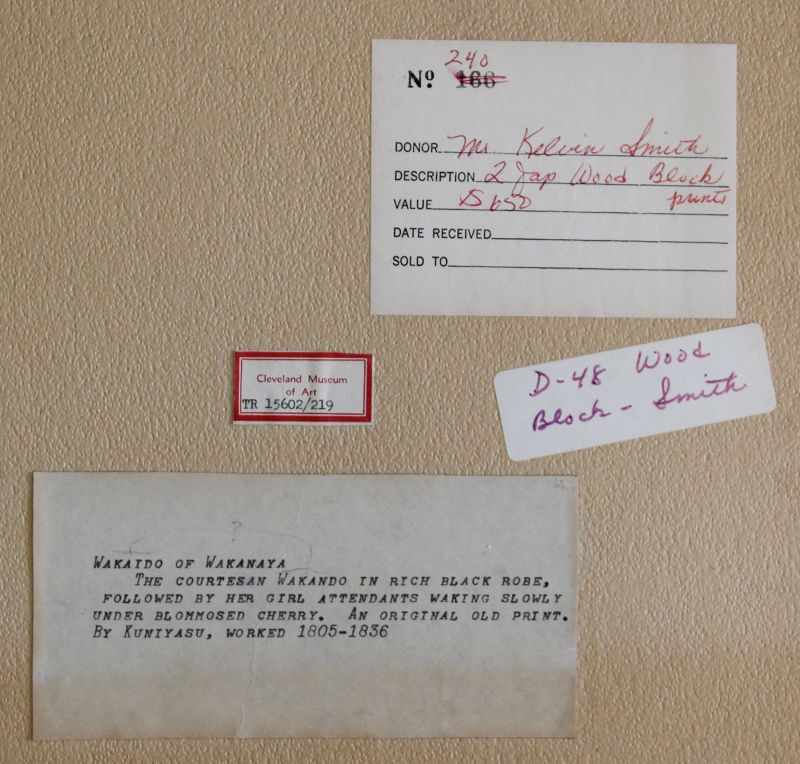 240
No. 166
DONOR Mr. Kelvin Smith
DESCRIPTION 2 Jap Wood Block
prints
VALUE $650
DATE RECEIVED
SOLD TO
Cleveland Museum
of Art
TR 15602/219
D-48 Wood
Block - Smith
?
WAKAIDO OF WAKANAYA
THE COURTESAN WAKANDO IN RICH BLACK ROBE,
FOLLOWED BY HER GIRL ATTENDANTS WAKING SLOWLY
UNDER BLOMMOSED CHERRY. AN ORIGINAL OLD PRINT.
BY KUNIYASU, WORKED 1805-1836